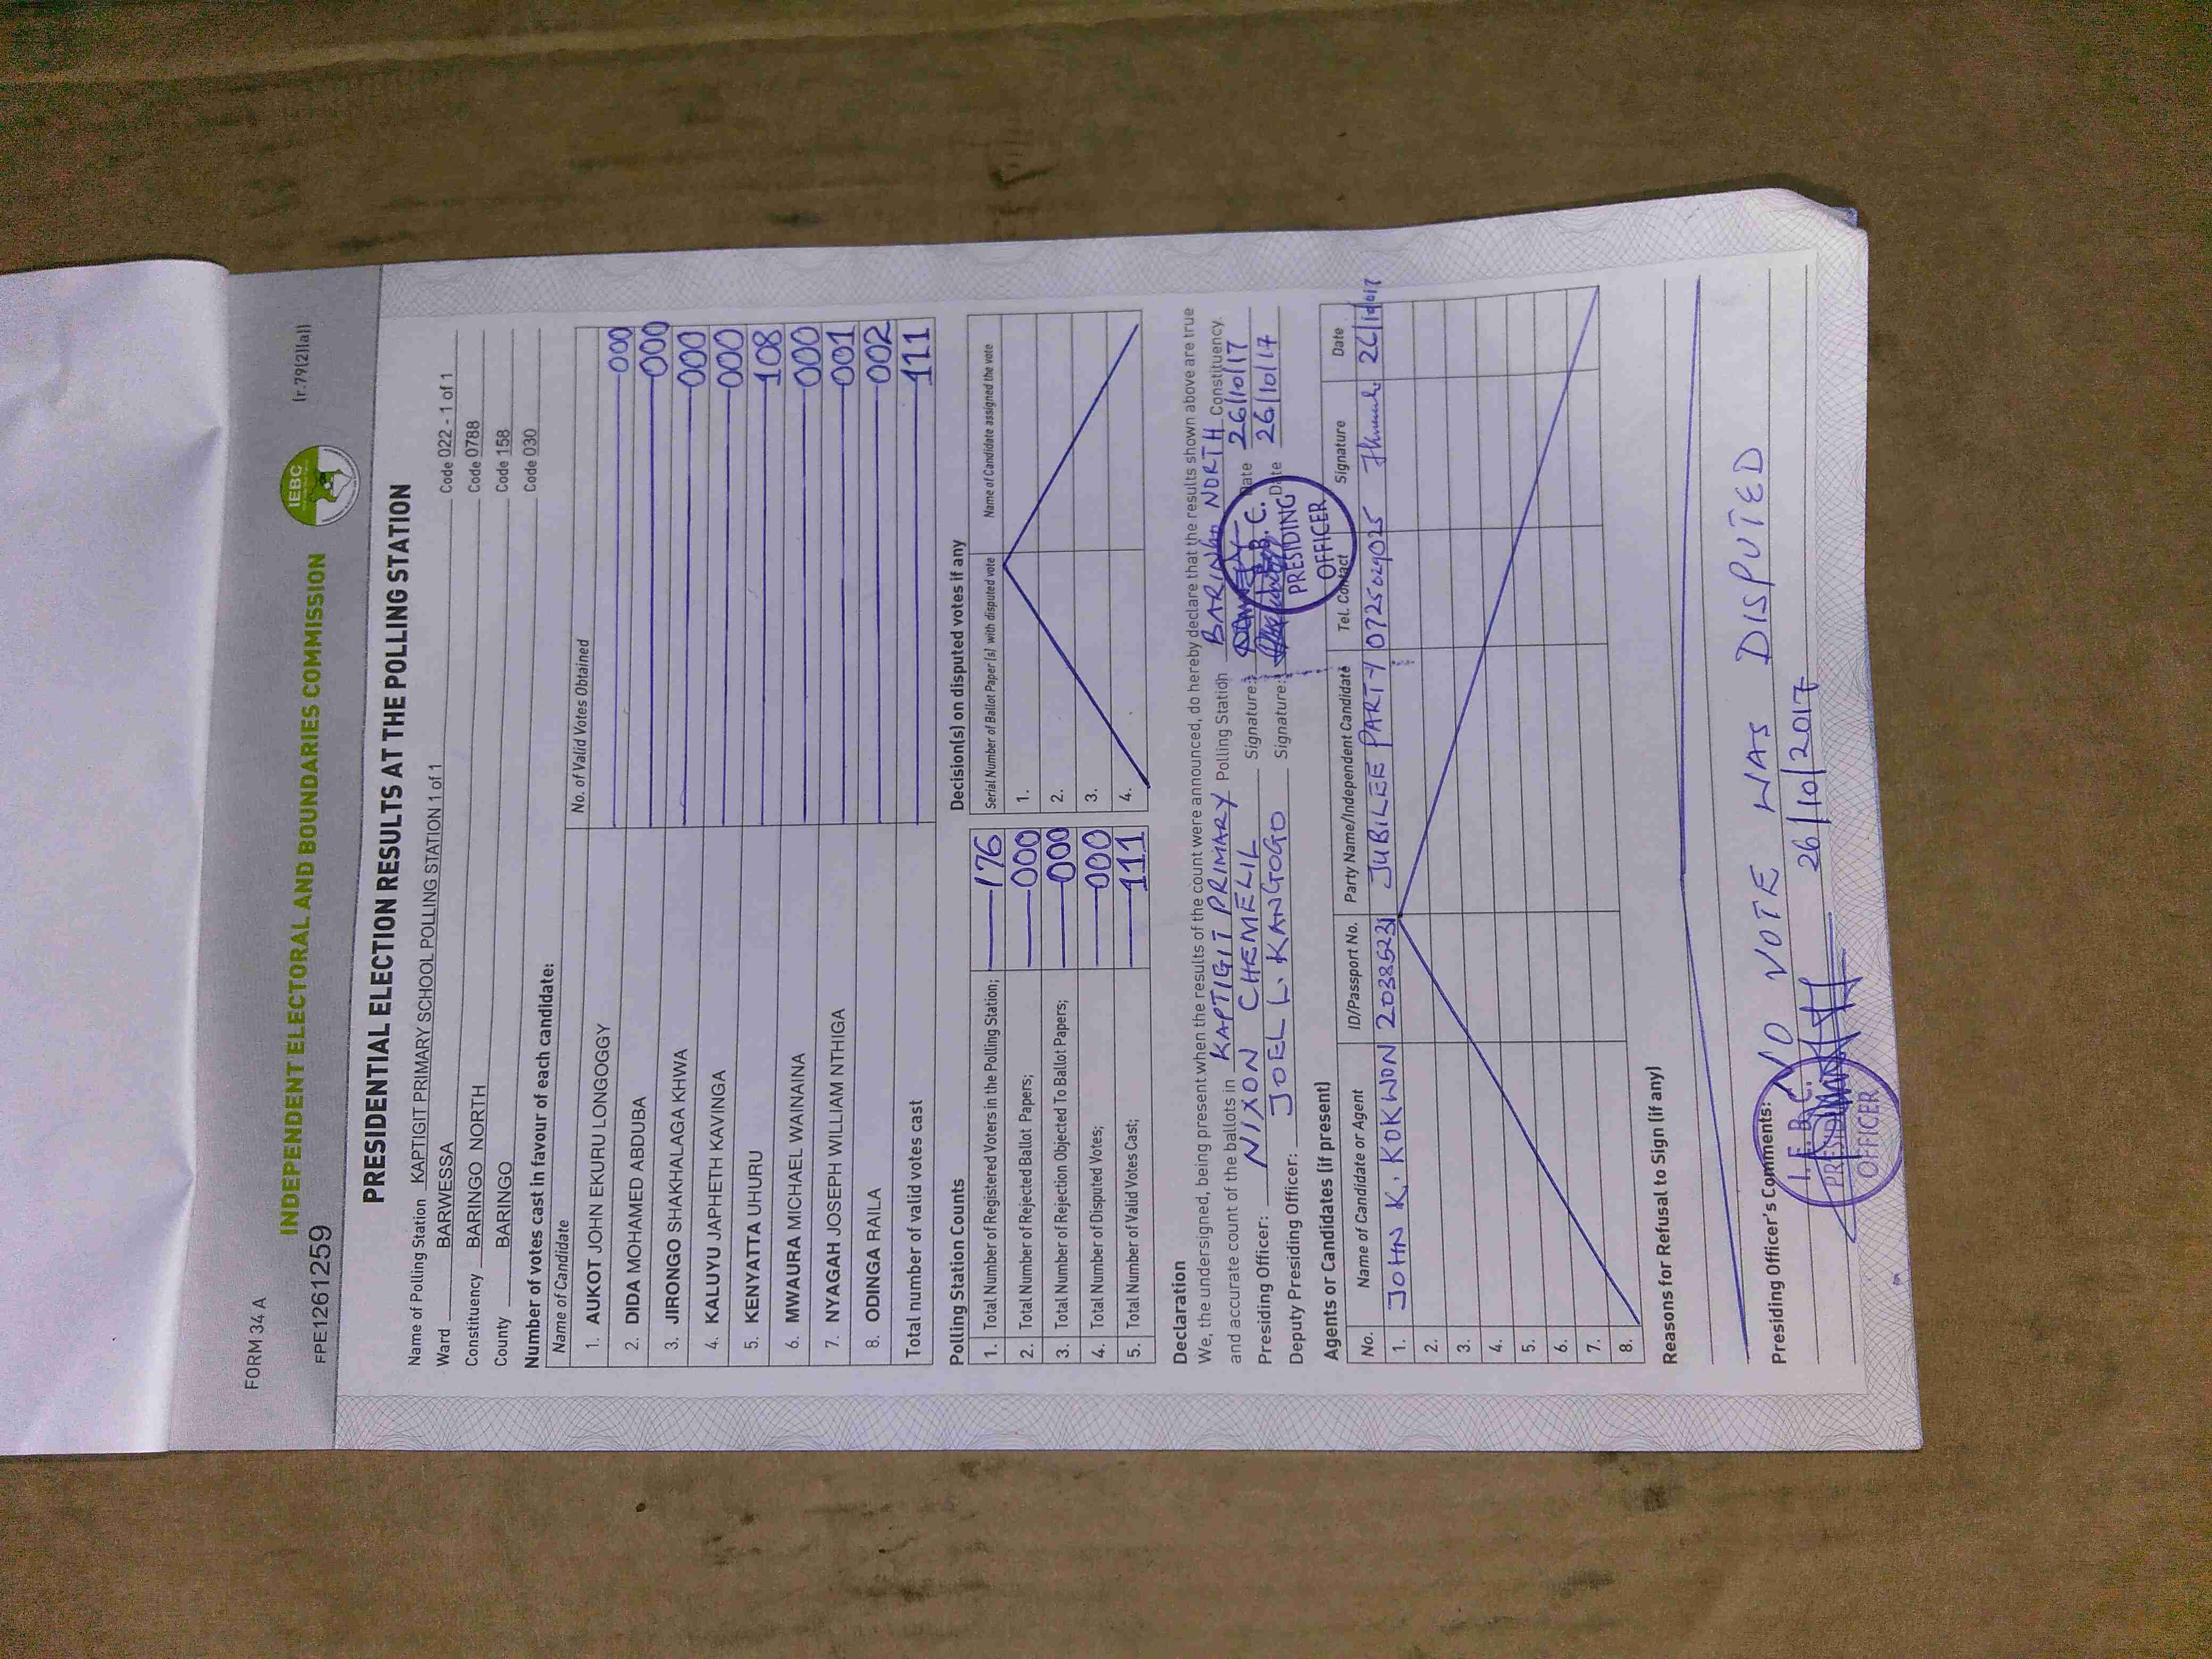 FORM 34 A
(r.79(2)(a))
INDEPENDENT ELECTORAL AND BOUNDARIES COMMISSION
IEBC
FPE1261259
PRESIDENTIAL ELECTION RESULTS AT THE POLLING STATION
Name of Polling Station KAPTIGIT PRIMARY SCHOOL POLLING STATION 1 of 1 Code 022 - 1 of 1
Ward BARWESSA Code 0788
Constituency BARINGO NORTH Code 158
County BARINGO Code 030
Number of votes cast in favour of each candidate:
Name of Candidate No. of Valid Votes Obtained
1. AUKOT JOHN EKURU LONGOGGY 000
2. DIDA MOHAMED ABDUBA 000
3. JIRONGO SHAKHALAGA KHWA 000
4. KALUYU JAPHETH KAVINGA 000
5. KENYATTA UHURU 108
6. MWAURA MICHAEL WAINAINA 000
7. NYAGAH JOSEPH WILLIAM NTHIGA 001
8. ODINGA RAILA 002
Total number of valid votes cast 111
Polling Station Counts
1. Total Number of Registered Voters in the Polling Station; 176
2. Total Number of Rejected Ballot Papers; 000
3. Total Number of Rejection Objected To Ballot Papers; 000
4. Total Number of Disputed Votes; 000
5. Total Number of Valid Votes Cast; 111
Decision(s) on disputed votes if any
Serial Number of Ballot Paper (s) with disputed vote Name of Candidate assigned the vote
1.
2.
3.
4.
Declaration
We, the undersigned, being present when the results of the count were announced, do hereby declare that the results shown above are true
and accurate count of the ballots in KAPTIGIT PRIMARY Polling Station BARINGO NORTH Constituency.
Presiding Officer: NIXON CHEMELIL Signature: Date 26/10/17
Deputy Presiding Officer: JOEL L. KANGOGO Signature: Date 26/10/17
B. C.
PRESIDING
OFFICER
Agents or Candidates (if present)
No. Name of Candidate or Agent ID/Passport No. Party Name/Independent Candidate Tel. Contact Signature Date
1. JOHN K. KOKWON 20385231 JUBILEE PARTY 0725029025
2.
3.
4.
5.
6.
7.
8.
Reasons for Refusal to Sign (if any)
Presiding Officer's Comments: NO VOTE WAS DISPUTED
26/10/2017
I.E.B.C.
PRESIDING
OFFICER